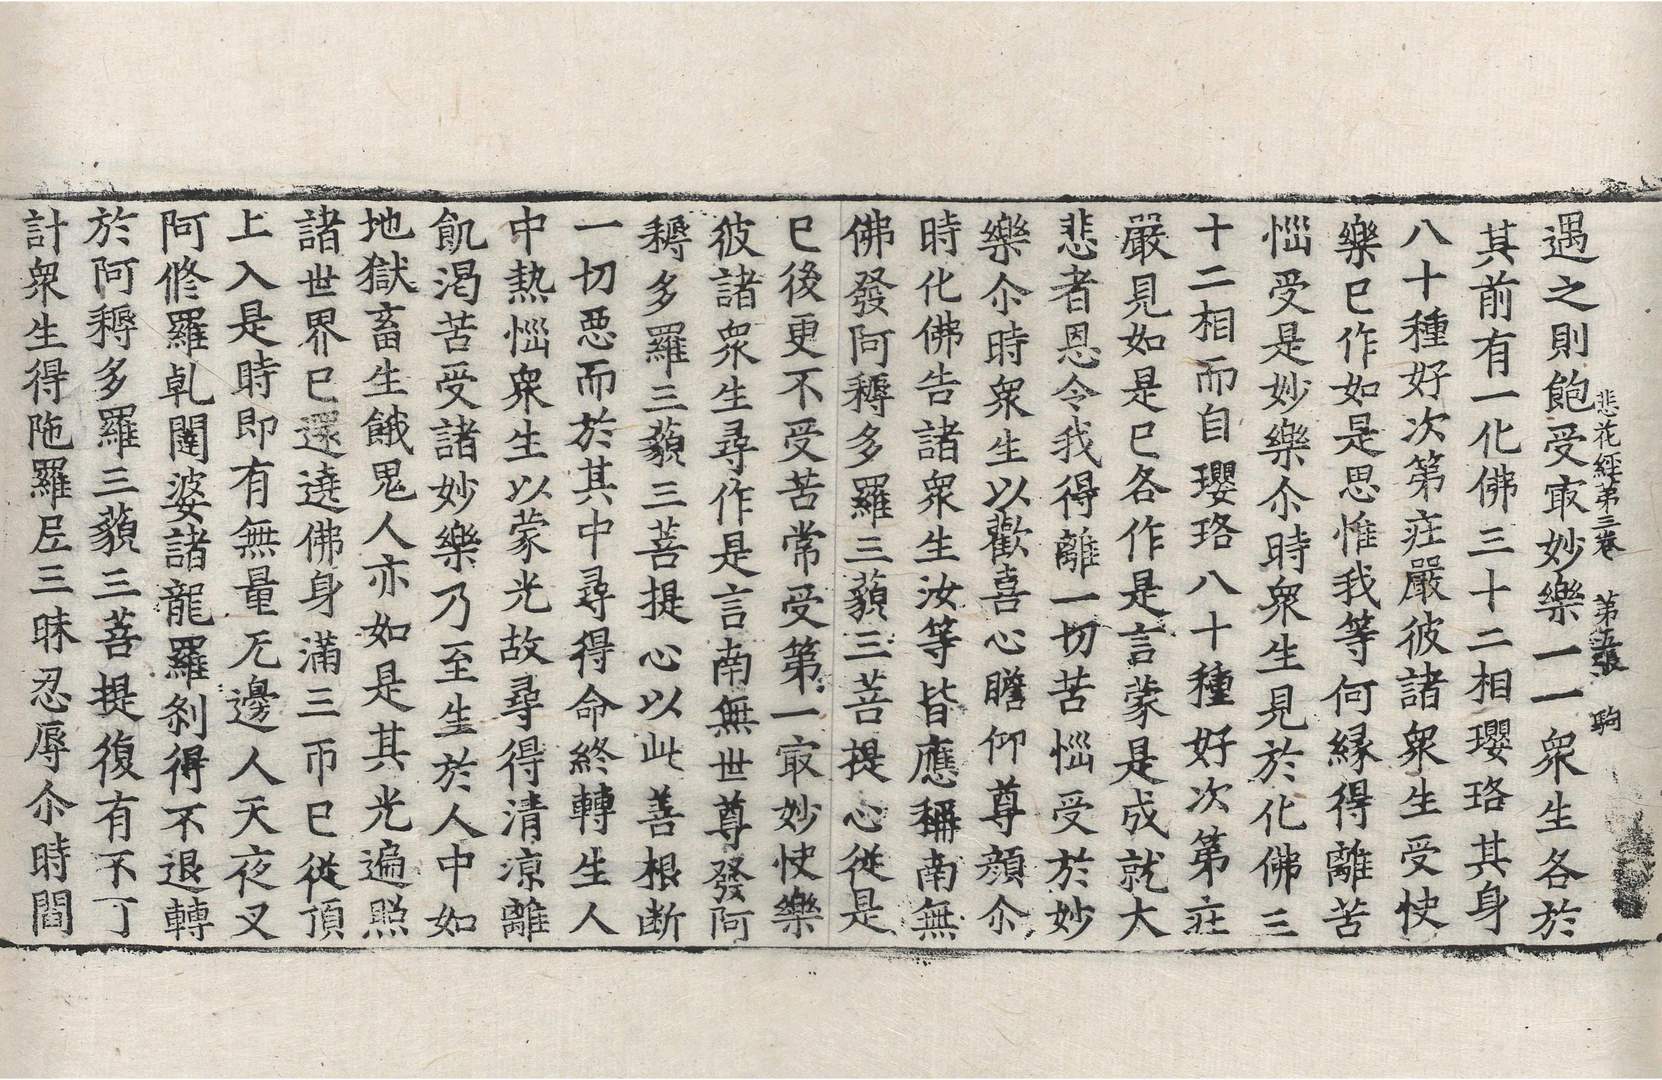 悲花經第三卷　第五張　駒
遇之則飽受㝡妙樂一一衆生各於
其前有一化佛三十二相瓔珞其身
八十種好次第莊嚴彼諸衆生受快
樂已作如是思惟我等何緣得離苦
惱受是妙樂尒時衆生見於化佛三
十二相而自瓔珞八十種好次第莊
嚴見如是已各作是言蒙是成就大
悲者恩令我得離一切苦惱受於妙
樂尒時衆生以歡喜心瞻仰尊顔尒
時化佛告諸衆生汝等皆應稱南無
佛發阿耨多羅三藐三菩提心從是
已後更不受苦常受第一㝡妙快樂
彼諸衆生尋作是言南無世尊發阿
耨多羅三藐三菩提心以此善根断
一切惡而於其中尋得命終轉生人
中熱惱衆生以蒙光故尋得清凉離
飢渴苦受諸妙樂乃至生於人中如
地獄畜生餓鬼人亦如是其光遍照
諸世界已還遶佛身滿三帀已從頂
上入是時即有無量无邊人天夜叉
阿修羅乹闥婆諸龍羅刹得不退轉
於阿耨多羅三藐三菩提復有不可
計衆生得陁羅𡰱三昧忍辱尒時閻